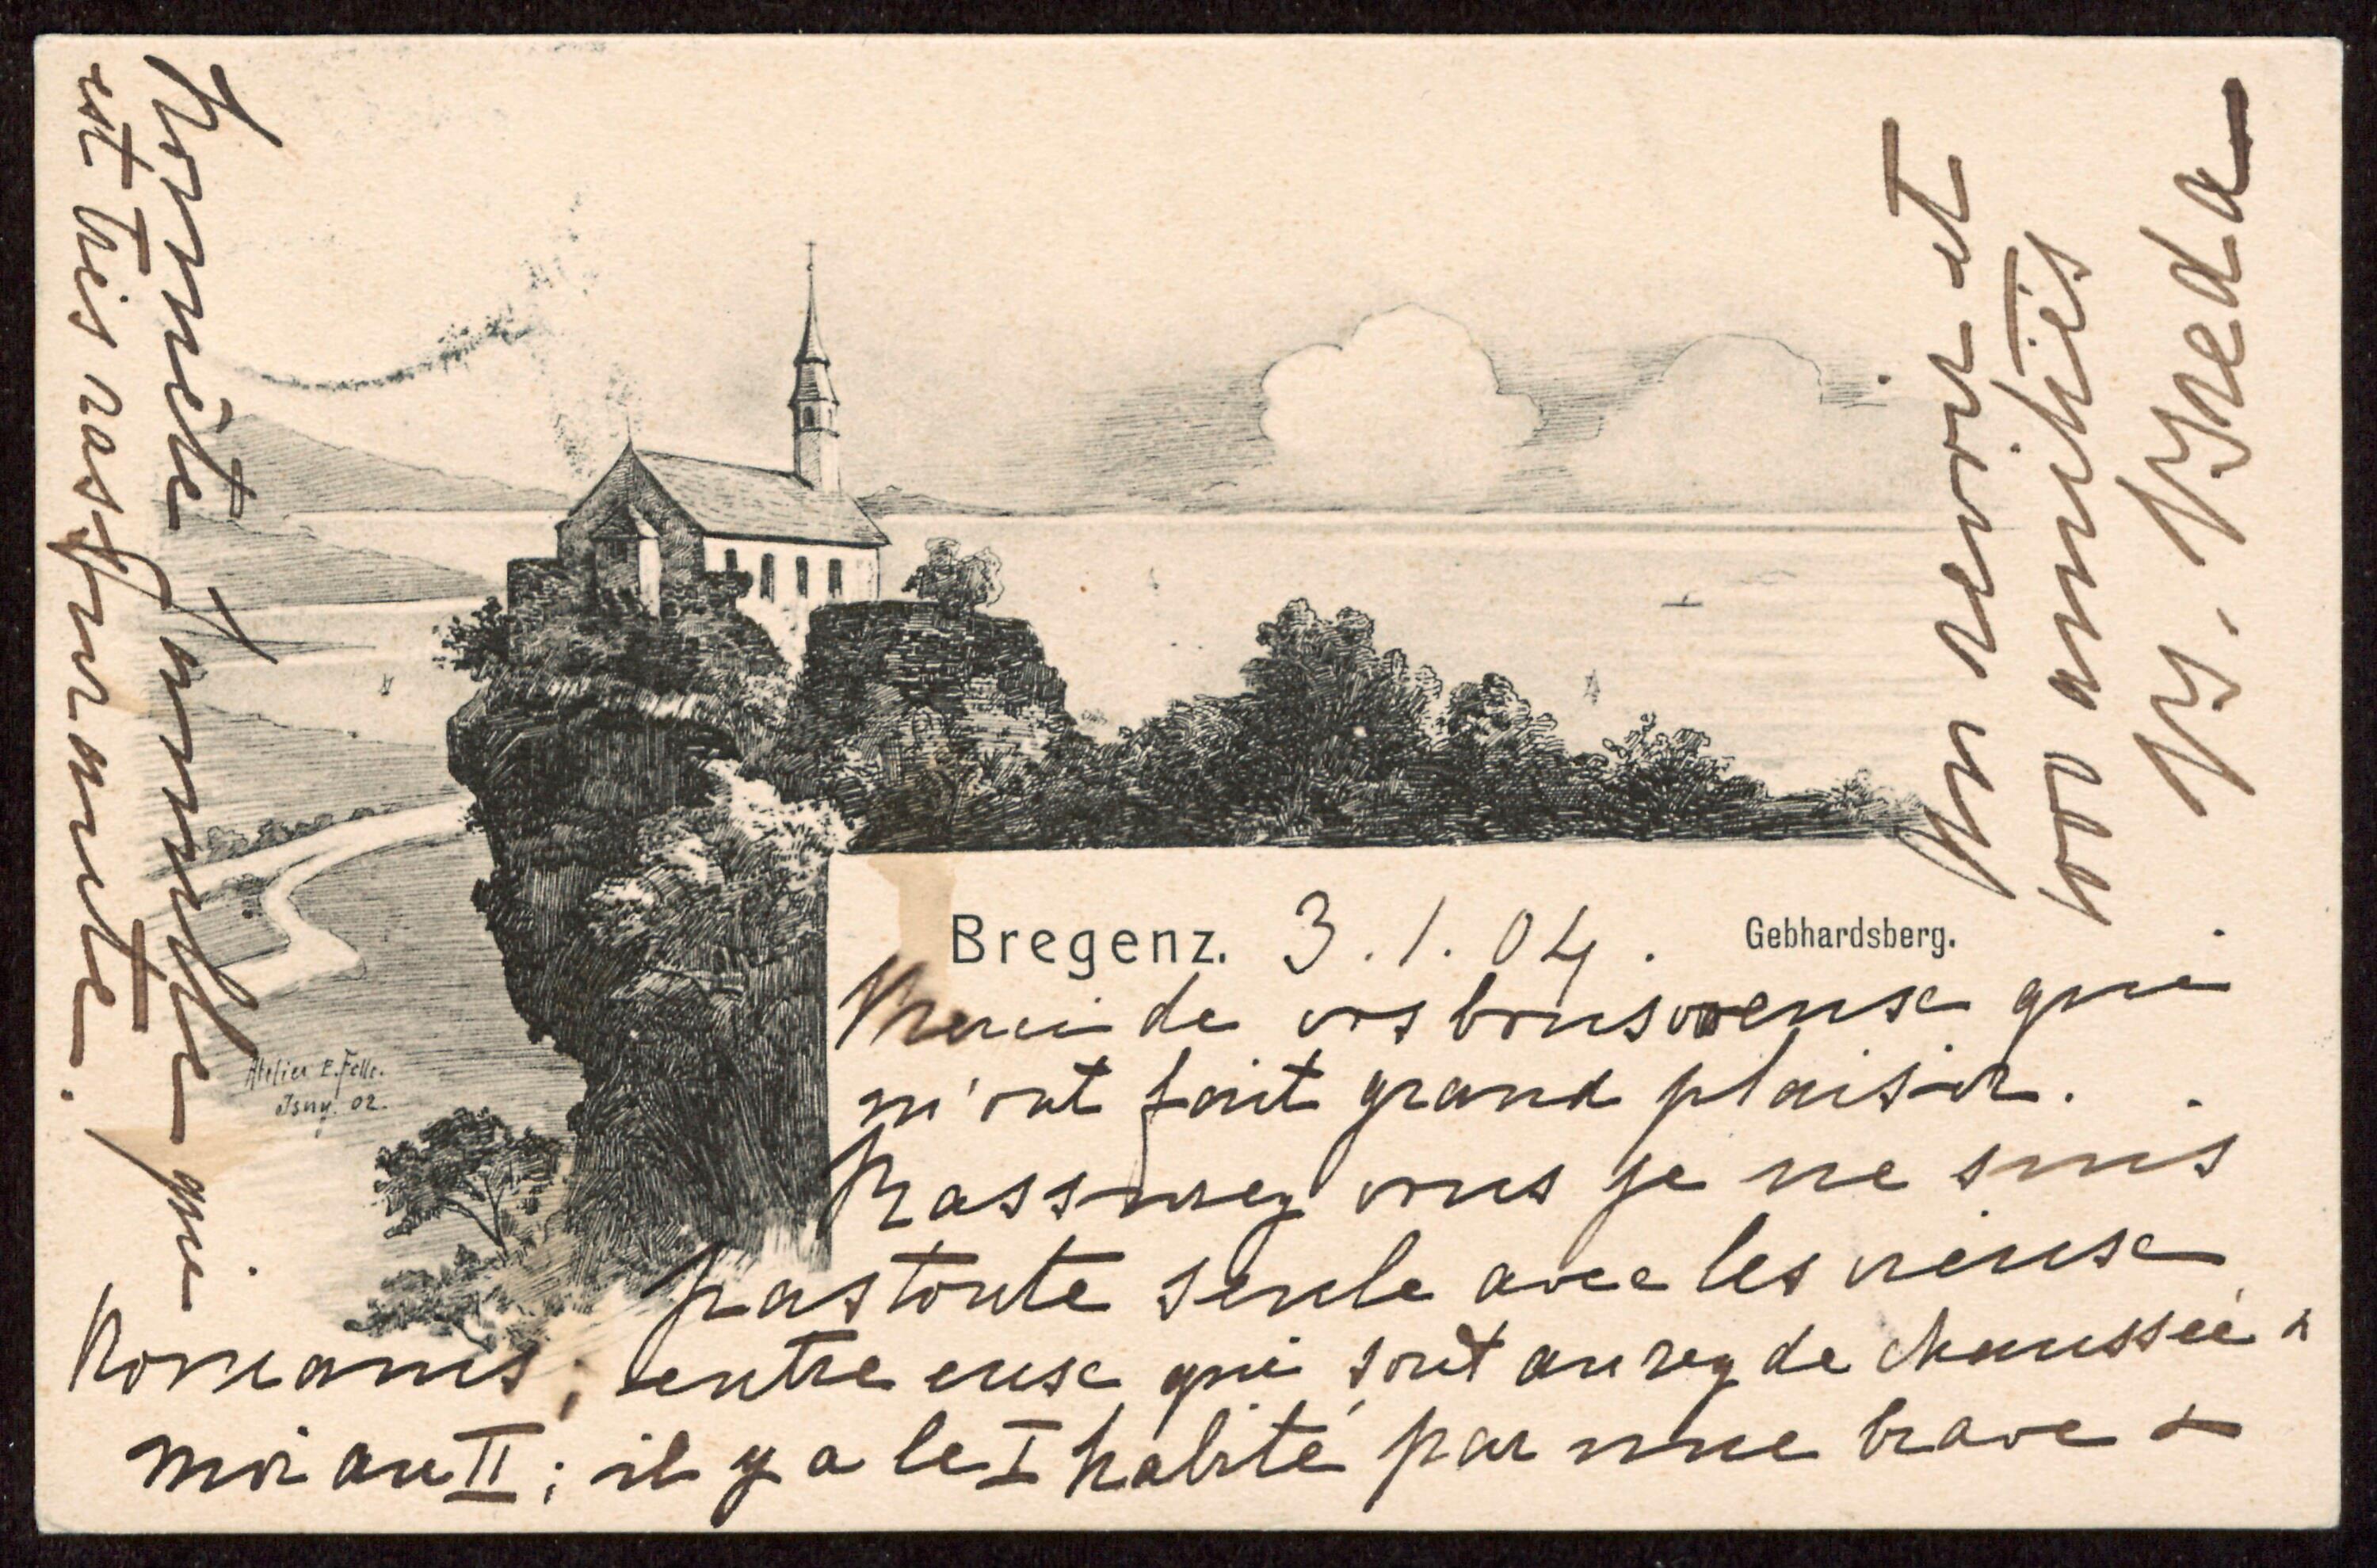 Bregenz. 3.1.04. Gebhardsberg.
Merci de vos bons voeux qui
m'ont fait grand plaisir.
Rassurez vous je ne suis
pas toute seule avec les vieux
Romains; entre eux qui sont au rez de chaussée &
moi au II; il y a le I habité par une brave &
honnête famille qui
est très rassurante.
Au revoir et
amitiés
B. Breda
Atelier E. Felle.
Isny. 02.